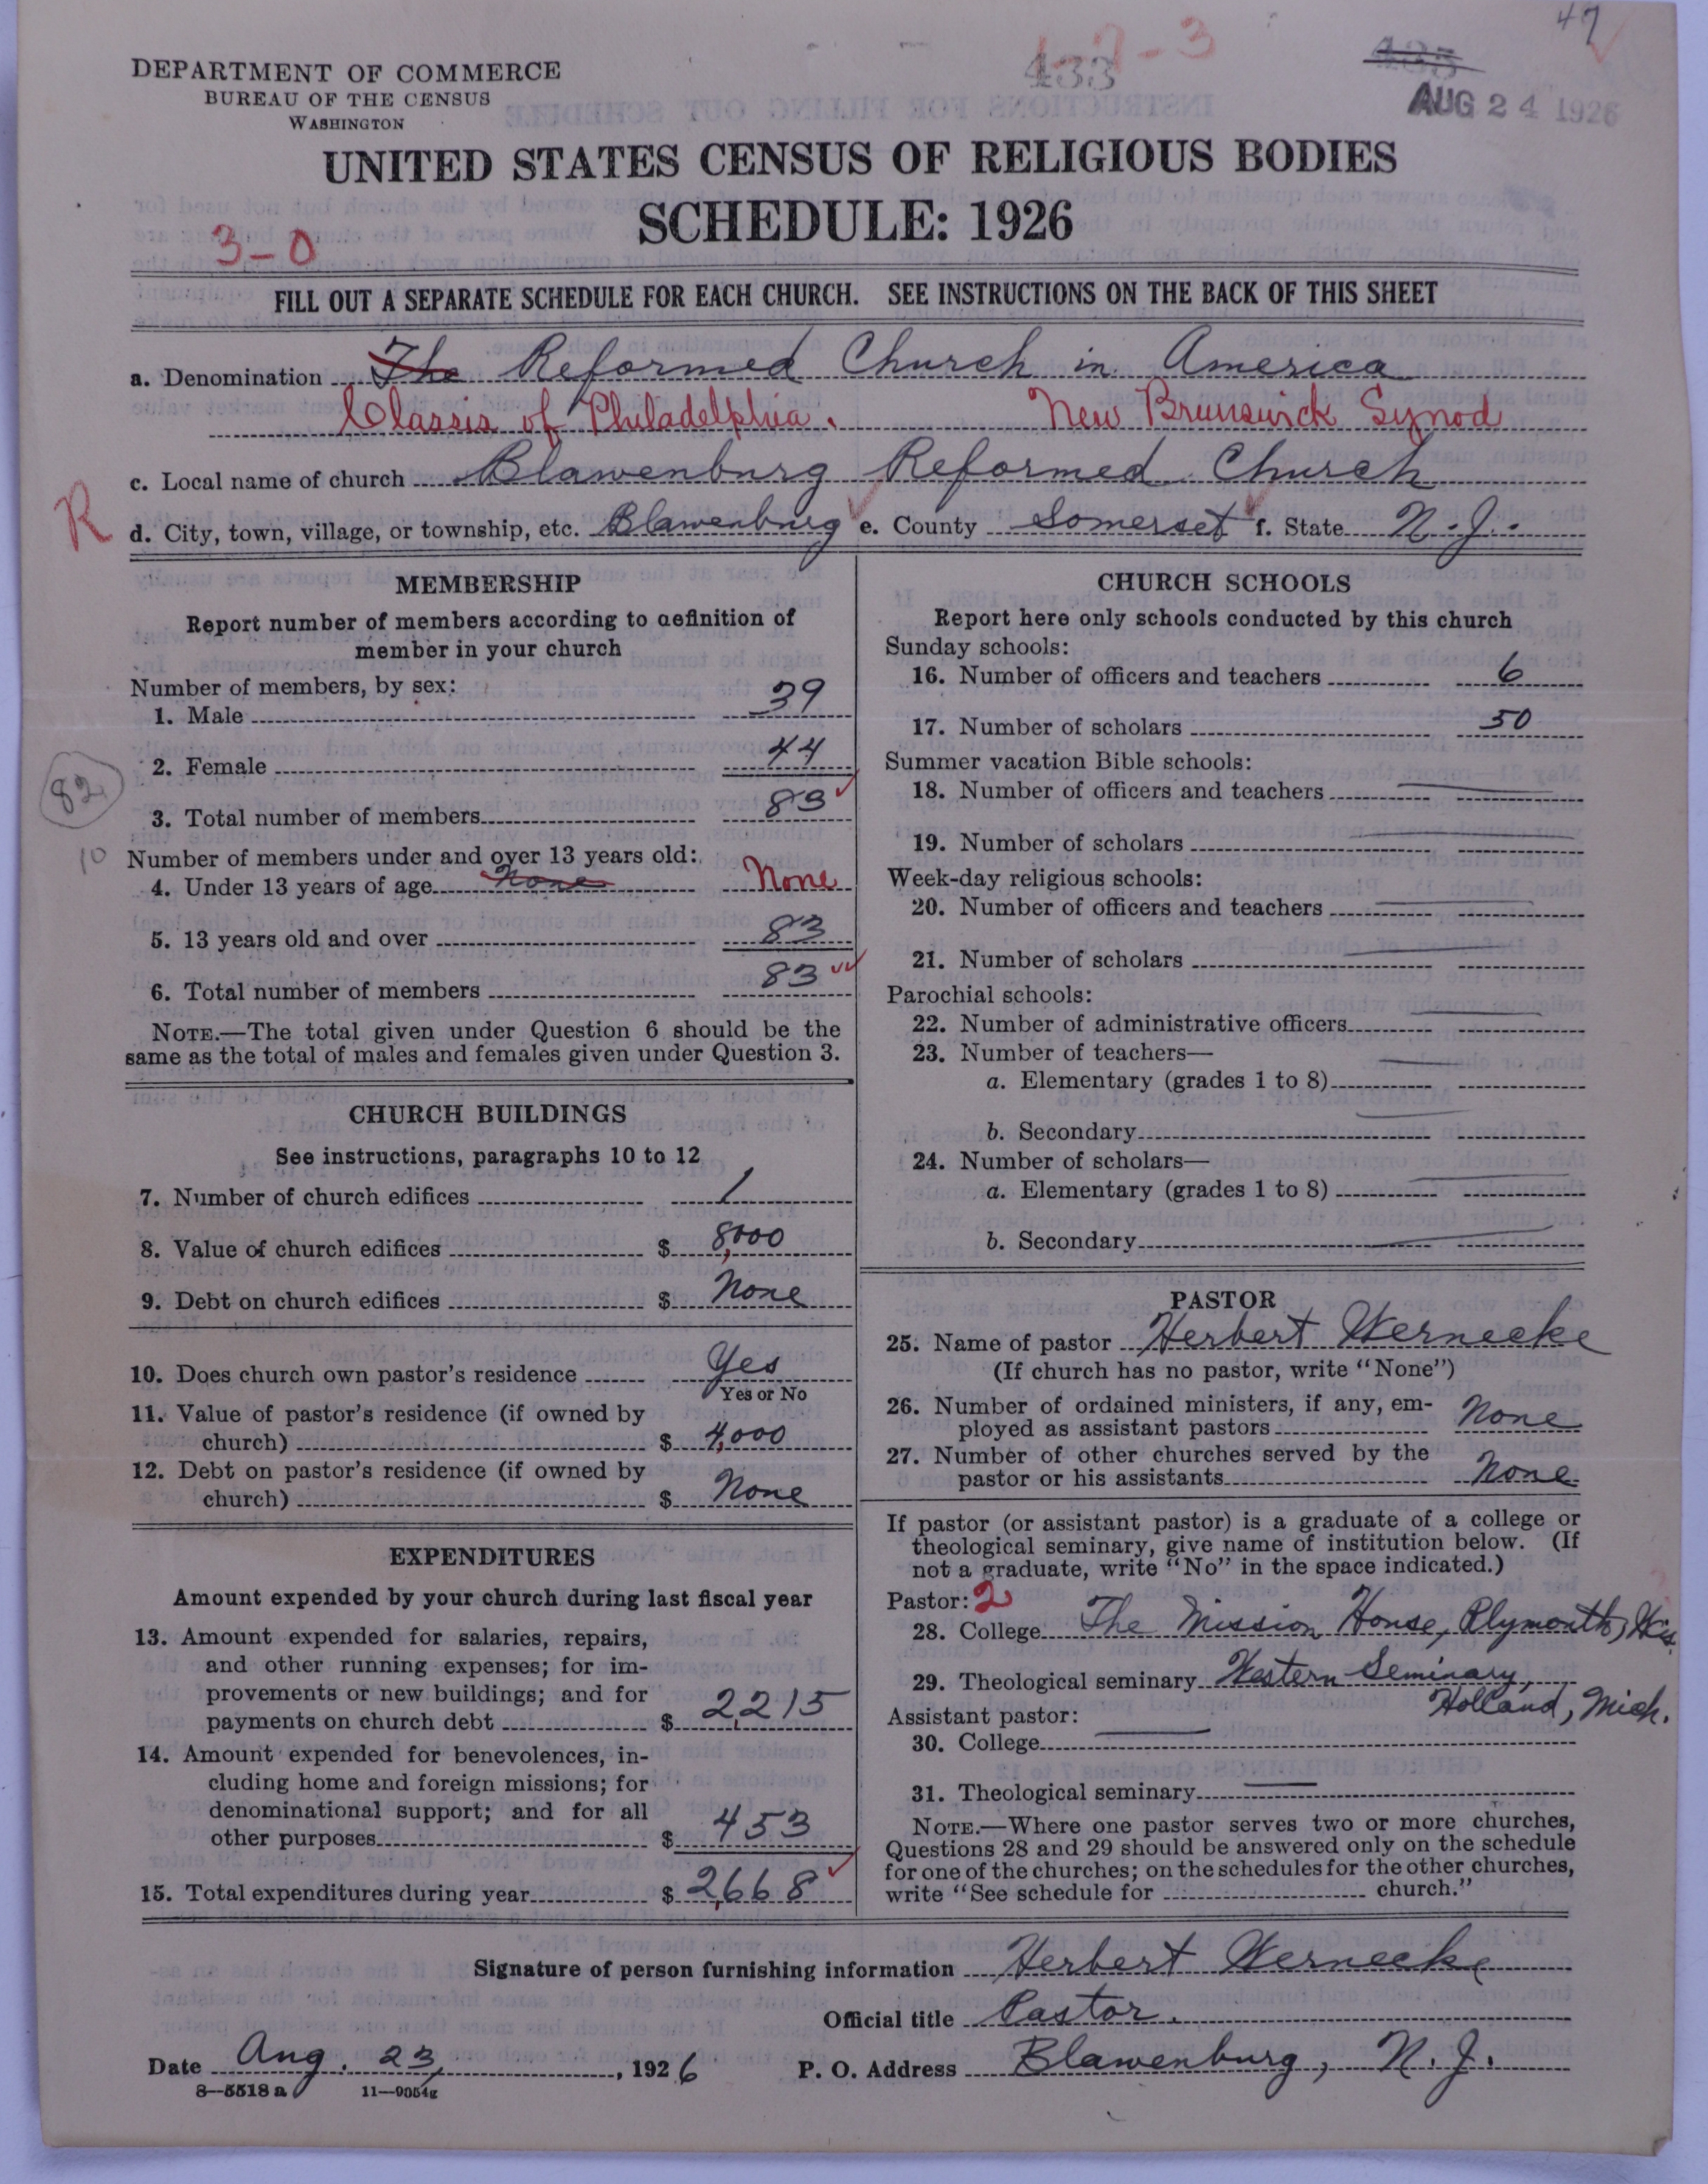 47
1-7-3
433
435
AUG 24 1926
DEPARTMENT OF COMMERCE
BUREAU OF THE CENSUS
WASHINGTON
UNITED STATES CENSUS OF RELIGIOUS BODIES
SCHEDULE: 1926
3-0
FILL OUT A SEPARATE SCHEDULE FOR EACH CHURCH. SEE INSTRUCTIONS ON THE BACK OF THIS SHEET
a. Denomination The Reformed Church in America
Classis of Philadelphia. New Brunswick Synod
c. Local name of church Blawenburg Reformed Church
R
d. City, town, village, or township, etc. Blawenburg e. County Somerset f. State N.J.
MEMBERSHIP
Report number of members according to definition of
member in your church
Number of members, by sex:
1. Male 39
2. Female 44
82
3. Total number of members 83
10
Number of members under and over 13 years old:
4. Under 13 years of age None None
5. 13 years old and over 83
6. Total number of members 83
NOTE.—The total given under Question 6 should be the
same as the total of males and females given under Question 3.
CHURCH BUILDINGS
See instructions, paragraphs 10 to 12
7. Number of church edifices 1
8. Value of church edifices $ 8,000
9. Debt on church edifices $ None
10. Does church own pastor's residence Yes
Yes or No
11. Value of pastor's residence (if owned by
church) $ 4,000
12. Debt on pastor's residence (if owned by
church) $ None
EXPENDITURES
Amount expended by your church during last fiscal year
13. Amount expended for salaries, repairs,
and other running expenses; for im-
provements or new buildings; and for
payments on church debt $ 2,215
14. Amount expended for benevolences, in-
cluding home and foreign missions; for
denominational support; and for all
other purposes $ 453
15. Total expenditures during year $ 2,668
CHURCH SCHOOLS
Report here only schools conducted by this church
Sunday schools:
16. Number of officers and teachers 6
17. Number of scholars 50
Summer vacation Bible schools:
18. Number of officers and teachers
19. Number of scholars
Week-day religious schools:
20. Number of officers and teachers
21. Number of scholars
Parochial schools:
22. Number of administrative officers
23. Number of teachers—
a. Elementary (grades 1 to 8)
b. Secondary
24. Number of scholars—
a. Elementary (grades 1 to 8)
b. Secondary
PASTOR
25. Name of pastor Herbert Wernecke
(If church has no pastor, write "None")
26. Number of ordained ministers, if any, em-
ployed as assistant pastors None
27. Number of other churches served by the
pastor or his assistants None
If pastor (or assistant pastor) is a graduate of a college or
theological seminary, give name of institution below. (If
not a graduate, write "No" in the space indicated.)
Pastor: 2
28. College The Mission House, Plymouth, Wis.
29. Theological seminary Western Seminary,
Holland, Mich.
Assistant pastor:
30. College
31. Theological seminary
NOTE.—Where one pastor serves two or more churches,
Questions 28 and 29 should be answered only on the schedule
for one of the churches; on the schedules for the other churches,
write "See schedule for church."
Signature of person furnishing information Herbert Wernecke
Official title Pastor.
Date Aug. 23, 1926 P. O. Address Blawenburg, N. J.
8—5518 a 11—9054g